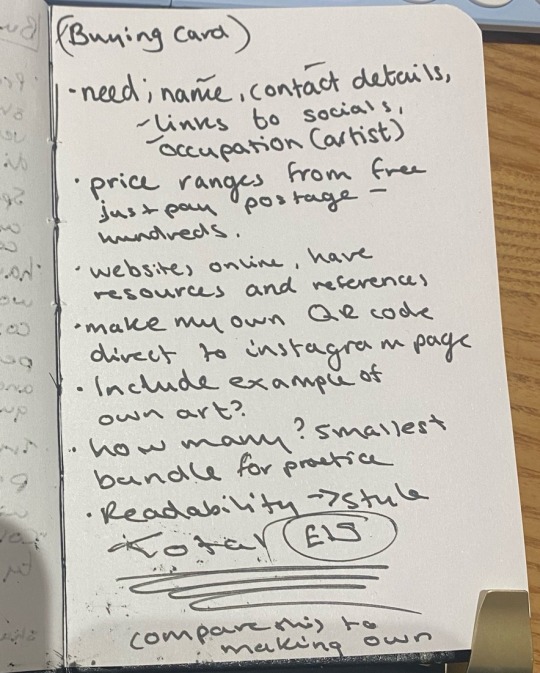 (Buying Card)
· need; name, contact details,
- links to socials,
occupation (artist)
· price ranges from free
just pay postage –
hundreds.
· websites online, have
resources and references
· make my own QR code
direct to instagram page
· Include example of
own art?
· how many? smallest
bundle for practice
· Readability → style
Total £15
compare this to
making own